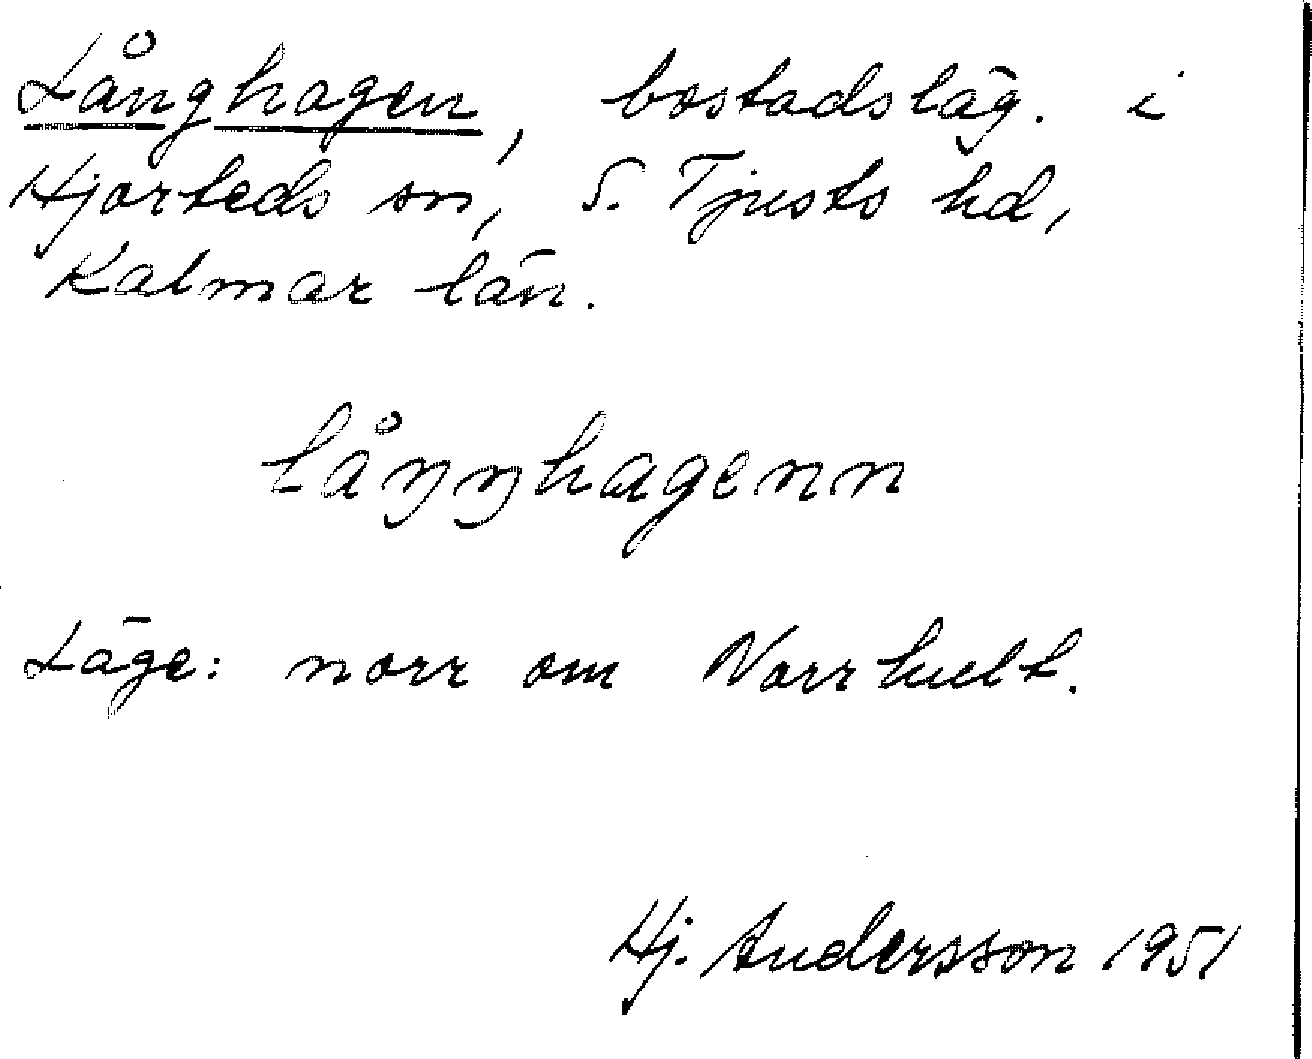 Långhagen, bostadsläg. i
Hjorteds sn, S. Tjusts hd,
Kalmar län.
låŋŋhagenn
Läge: norr om Norrhult.
Hj. Andersson 1951